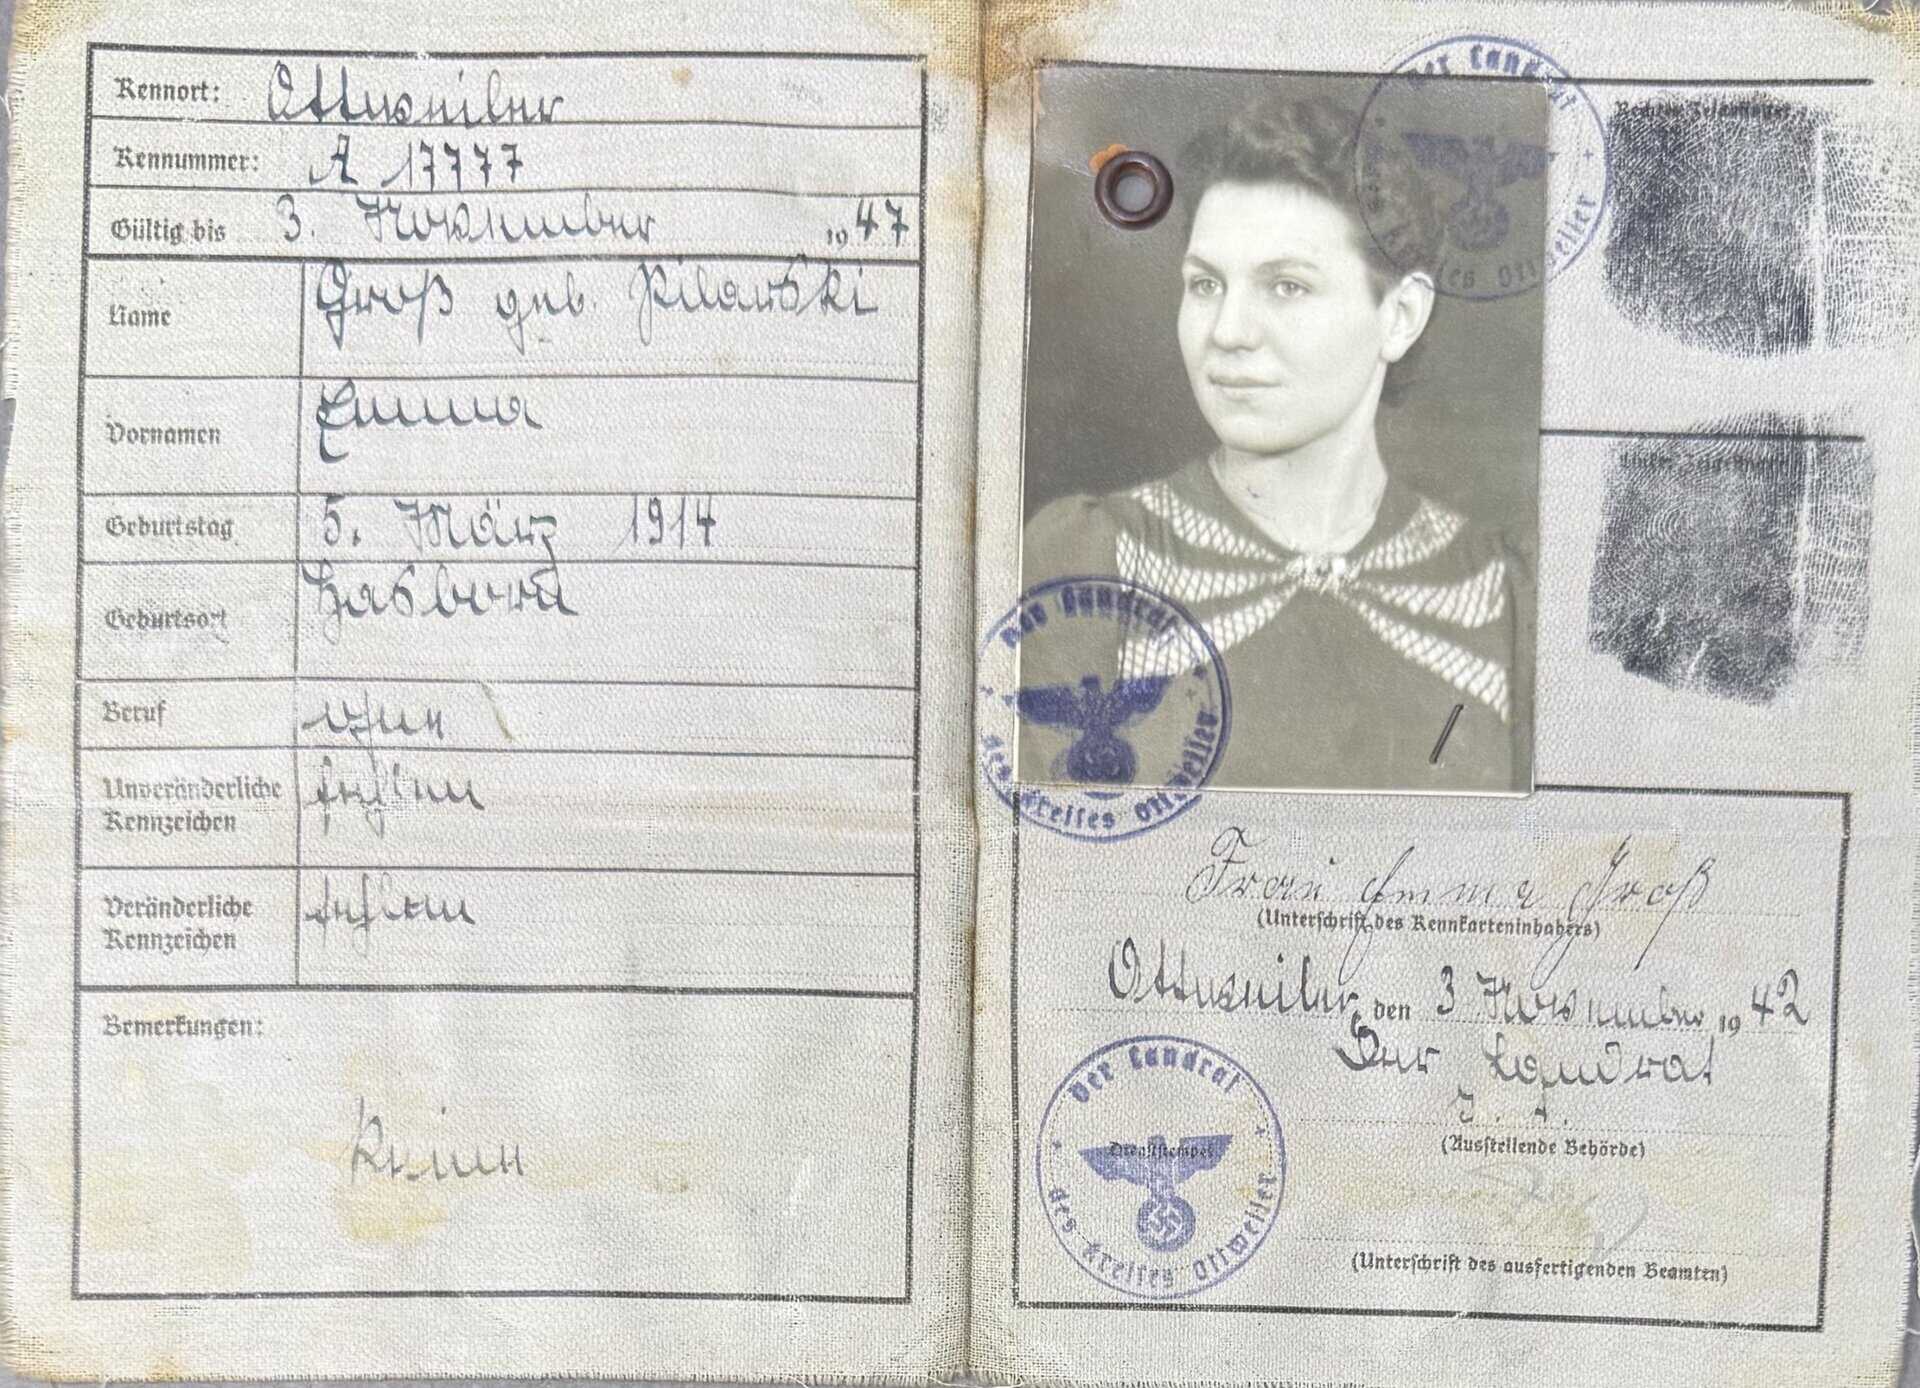 Kennort: Ottweiler
Kennummer: A 17777
Gültig bis 3. November 1947
Name Groß geb. Pilawski
Vornamen Emma
Geburtstag 5. März 1914
Geburtsort Hasborn
Beruf ohne
Unveränderliche Kennzeichen fehlen
Veränderliche Kennzeichen fehlen
Bemerkungen:
Keine
Der Landrat des Kreises Ottweiler
Rechter Zeigefinger
Linker Zeigefinger
Der Landrat des Kreises Ottweiler
Frau Emma Groß
(Unterschrift des Kennkarteninhabers)
Ottweiler, den 3. November 1942
Der Landrat
J. A.
(Ausstellende Behörde)
Der Landrat des Kreises Ottweiler
Dienststempel
(Unterschrift des ausfertigenden Beamten)